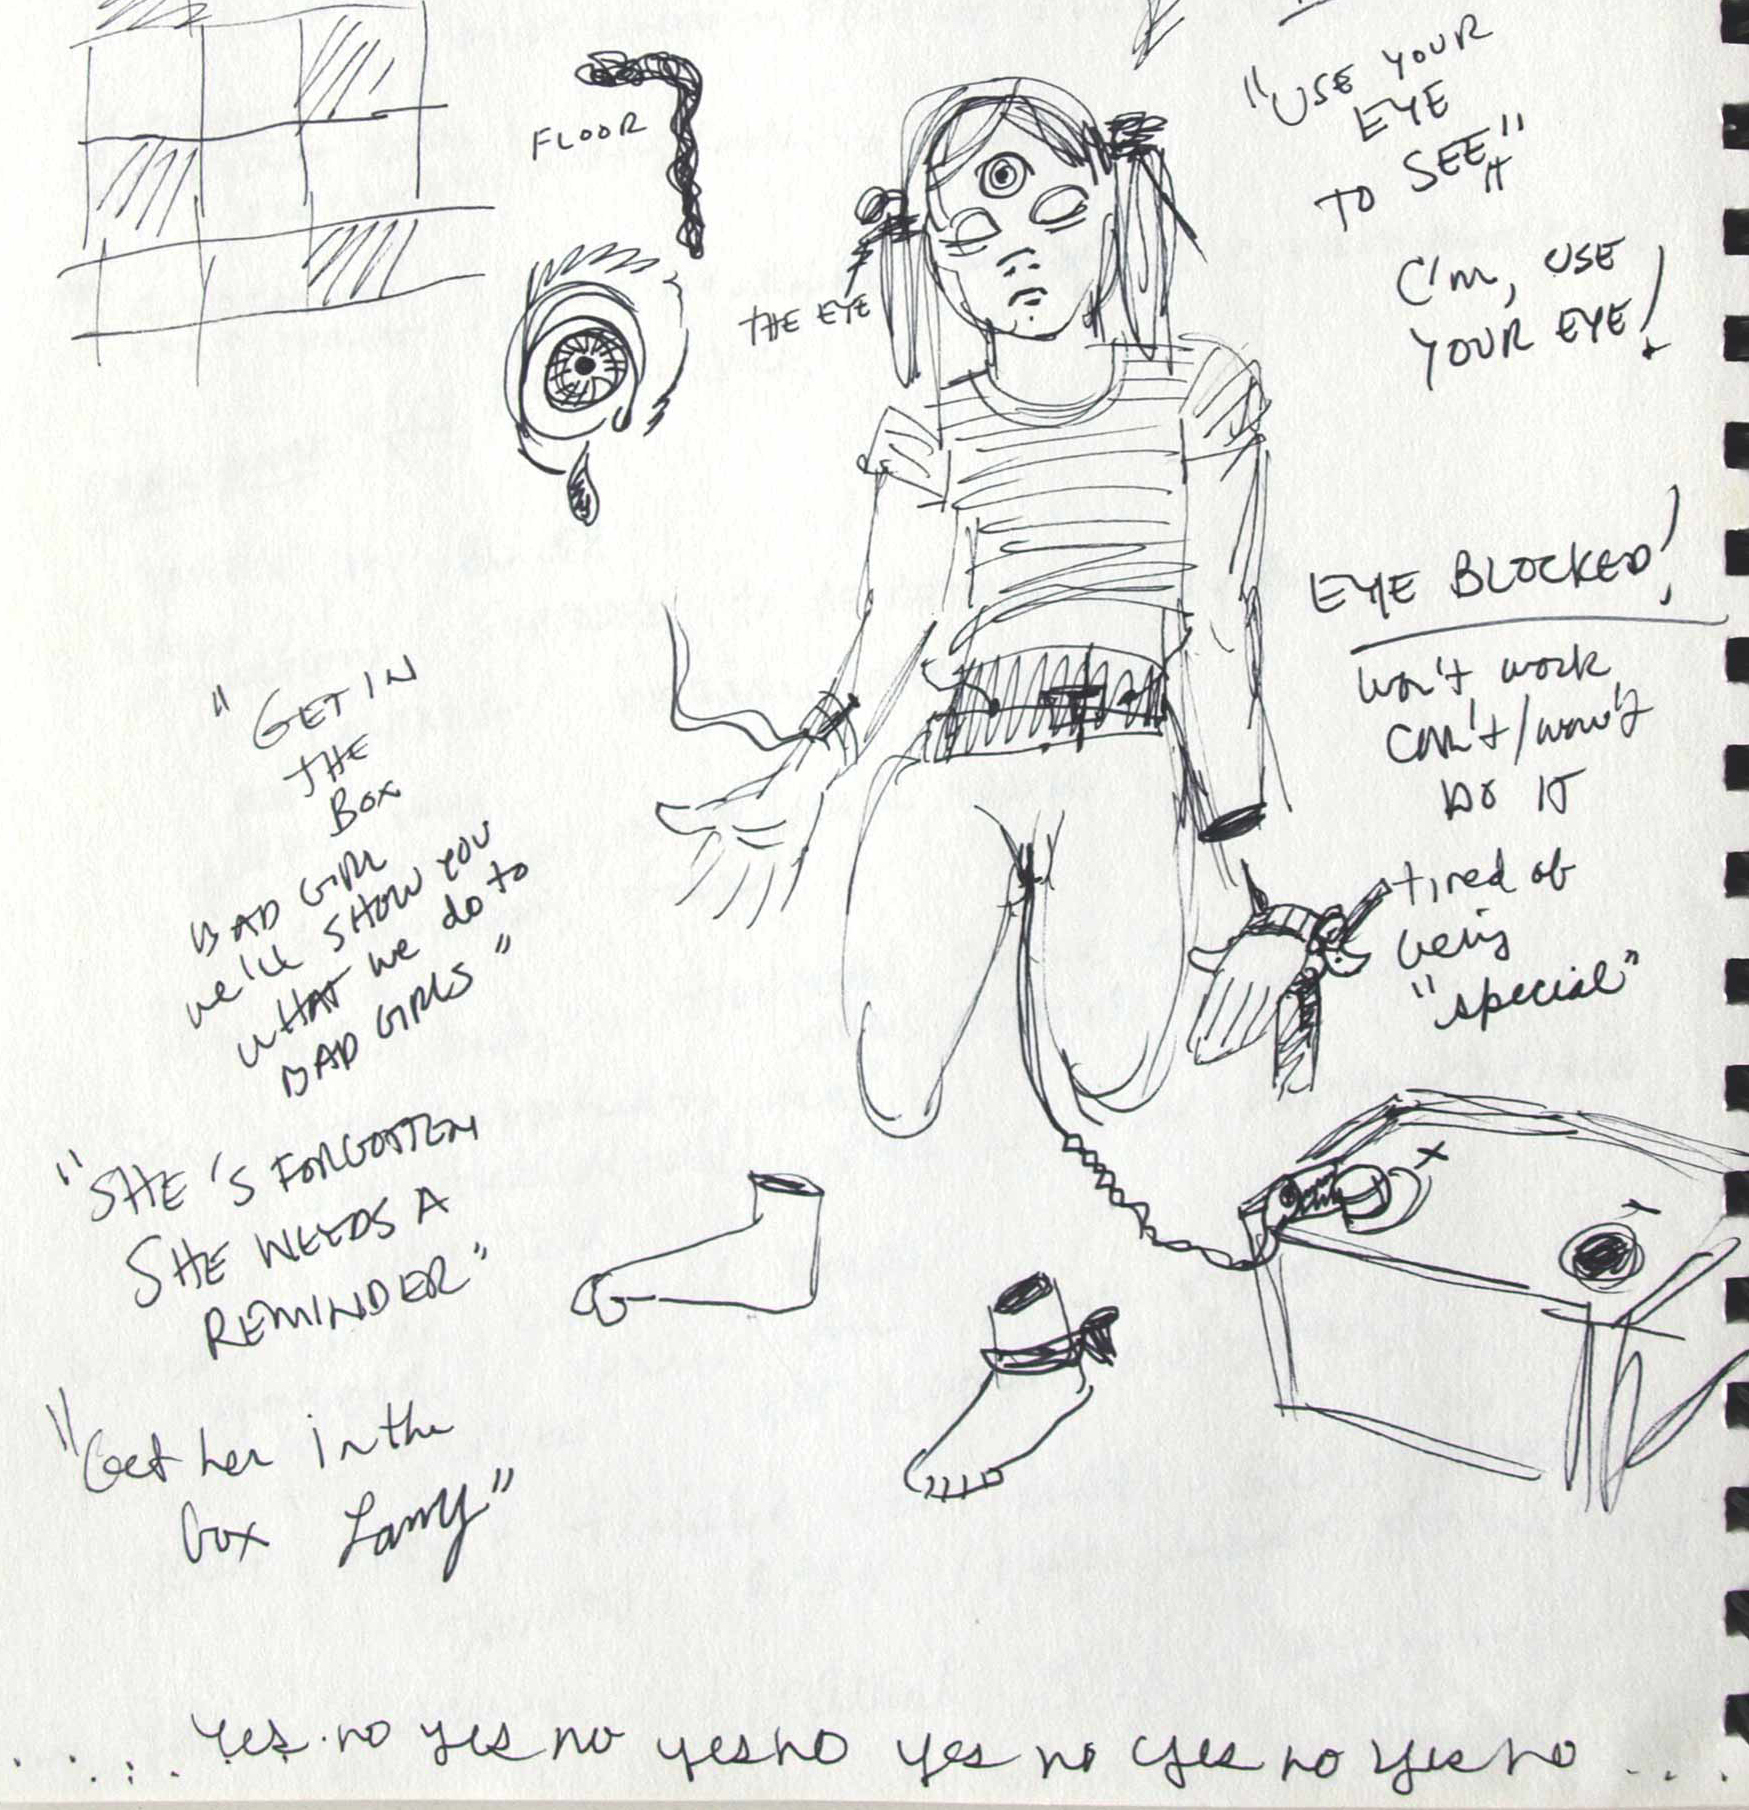 FLOOR
THE EYE
"USE YOUR
EYE
TO SEE"
C'm, USE
YOUR EYE!
EYE BLOCKED!
won't work
can't/won't
DO IT
tired of
being
"special"
"GET IN
THE
BOX
BAD GIRL
we'll SHOW YOU
WHAT we do to
BAD GIRLS"
"SHE'S FORGOTTEN
SHE NEEDS A
REMINDER"
"Get her in the
box Larry"
.....yes.no yes no yes no yes no yes no yes no...